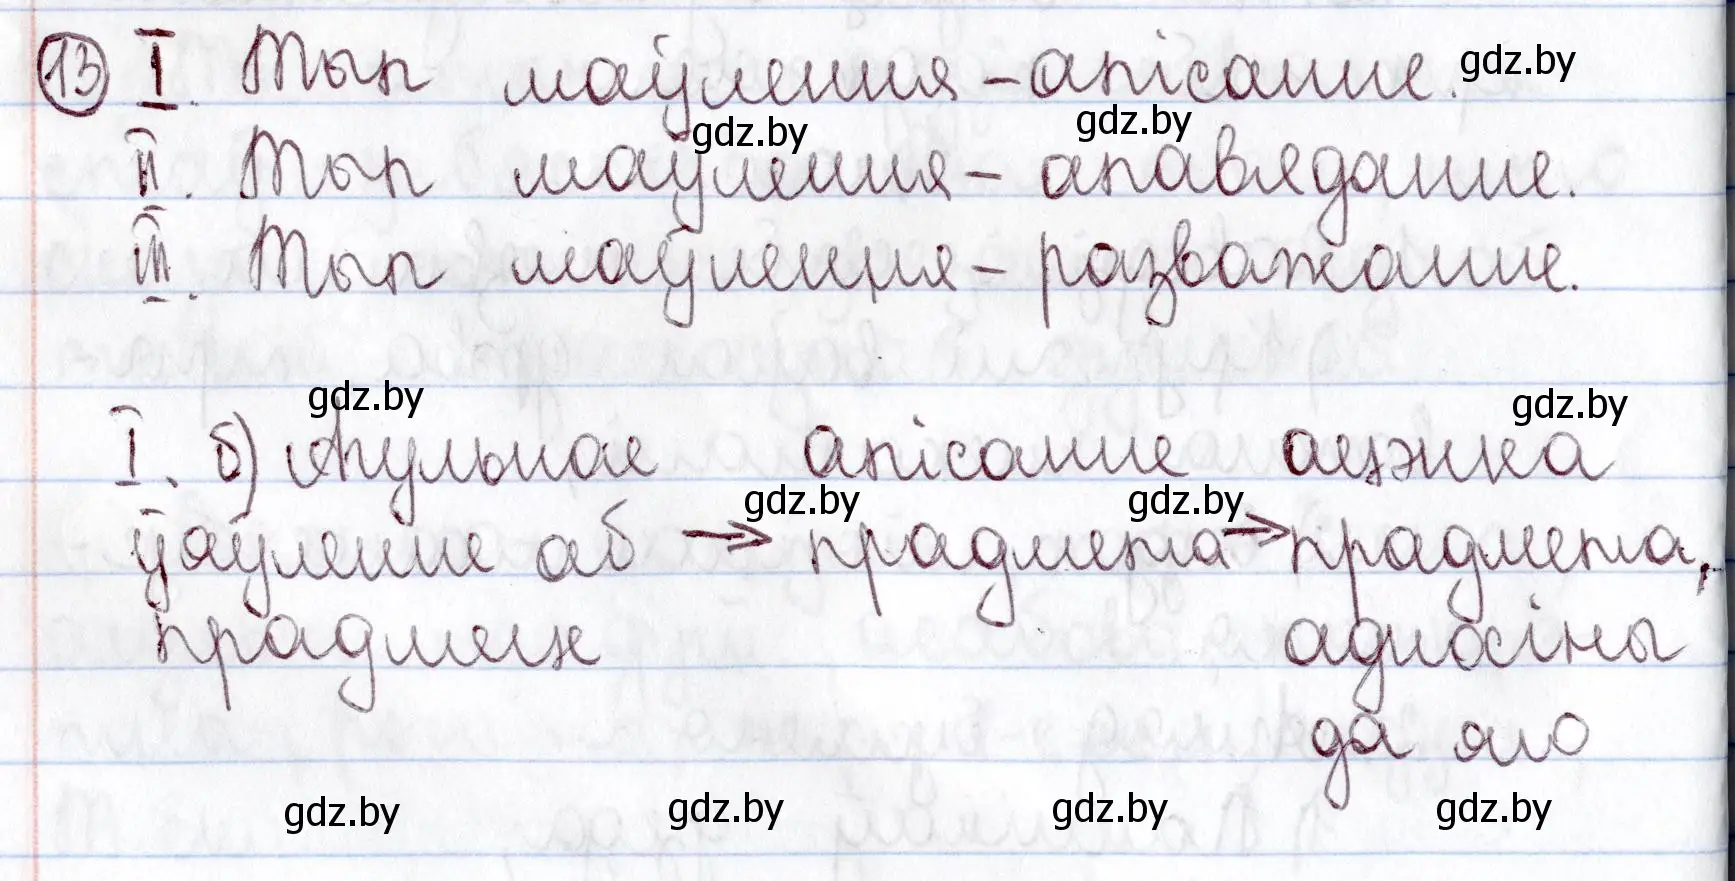 13 I. Тып маўлення – апісанне. gdz.by
gdz.by gdz.by
II. Тып маўлення – апавяданне.
III. Тып маўлення – разважанне.
gdz.by gdz.by
I. б) Агульнае апісанне ацэнка
gdz.by gdz.by
ўяўленне аб → прадмета → прадмета,
прадмеце адносіны
да яго
gdz.by gdz.by gdz.by gdz.by